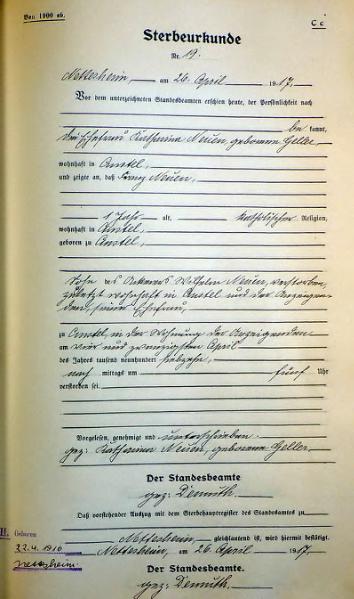 Vor. 1900 ab.
C c
Sterbeurkunde
Nr. 19.
Nettersheim, am 26. April 1917.
Vor dem unterzeichneten Standesbeamten erschien heute, der Persönlichkeit nach
be kannt,
die Ehefrau Katharina Neuen, geborene Geller
wohnhaft in
und zeigte an, daß Neuen,
1 Jahr alt, katholischer Religion,
wohnhaft in
geboren zu
Sohn des Ackerers Wilhelm Neuen, verstorben,
zuletzt wohnhaft in und der Anzeigen
den, seiner Ehefrau,
zu in der Wohnung der Anzeigenden
am vier und zwanzigsten April
des Jahres tausend neunhundert siebzehn
nach mittags um fünf Uhr
verstorben sei.
Vorgelesen, genehmigt und unterschrieben
gez: Katharina Neuen, geborene Geller.
Der Standesbeamte
gez: Demuth.
Daß vorstehender Auszug mit dem Sterbehauptregister des Standesamts zu
Nettersheim gleichlautend ist, wird hiermit bestätigt.
Nettersheim, am 26 April 1917
Der Standesbeamte.
gez: Demuth.
H. Geboren
22.4.1916
Nettersheim